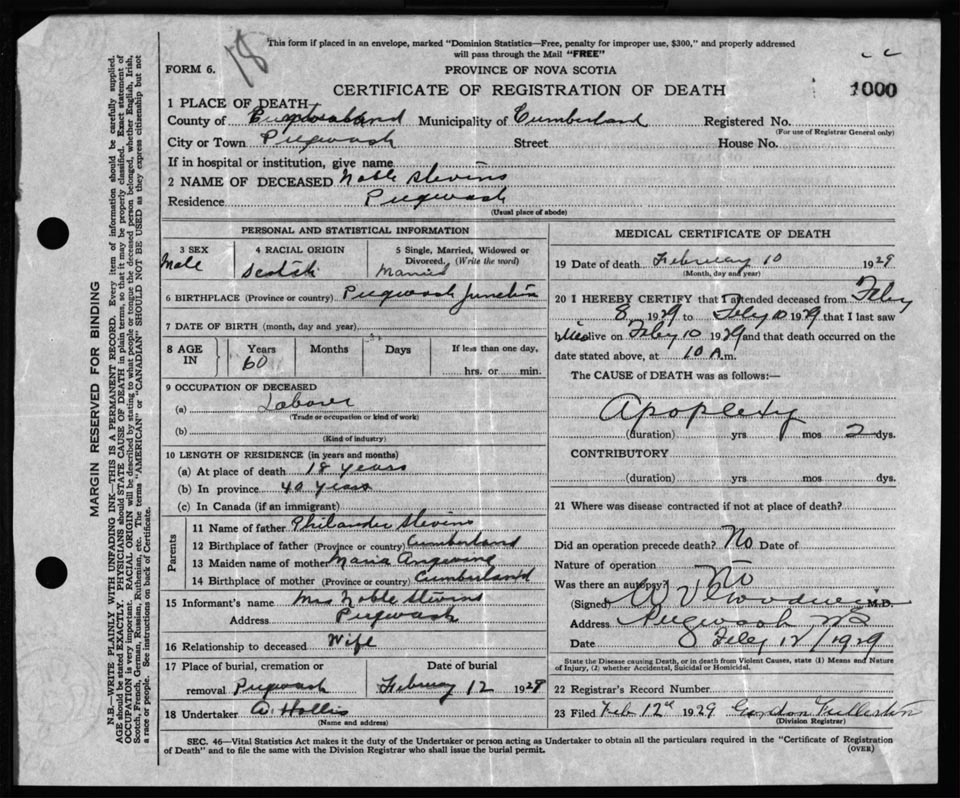 18
This form if placed in an envelope, marked "Dominion Statistics—Free, penalty for improper use, $300," and properly addressed
will pass through the Mail "FREE"
FORM 6.
PROVINCE OF NOVA SCOTIA
CERTIFICATE OF REGISTRATION OF DEATH
1000
1 PLACE OF DEATH
County of Cumberland Municipality of Cumberland Registered No.
(For use of Registrar General only)
City or Town Pugwash Street House No.
If in hospital or institution, give name
2 NAME OF DECEASED Noble Stevens
Residence Pugwash
(Usual place of abode)
PERSONAL AND STATISTICAL INFORMATION
3 SEX 4 RACIAL ORIGIN 5 Single, Married, Widowed or
Divorced, (Write the word)
Male Scotch Married
6 BIRTHPLACE (Province or country) Pugwash Junction
7 DATE OF BIRTH (month, day and year)
8 AGE IN Years Months Days If less than one day,
60 hrs. or min.
9 OCCUPATION OF DECEASED
(a) Laborer
(Trade or occupation or kind of work)
(b)
(Kind of industry)
10 LENGTH OF RESIDENCE (in years and months)
(a) At place of death 18 years
(b) In province 40 years
(c) In Canada (if an immigrant)
Parents
11 Name of father Philander Stevens
12 Birthplace of father (Province or country) Cumberland
13 Maiden name of mother Maria Angevine
14 Birthplace of mother (Province or country) Cumberland
15 Informant's name Mrs Noble Stevens
Address Pugwash
16 Relationship to deceased Wife
17 Place of burial, cremation or Date of burial
removal Pugwash February 12 1929
18 Undertaker W. Hollis
(Name and address)
MEDICAL CERTIFICATE OF DEATH
19 Date of death February 10 1929
(Month, day and year)
20 I HEREBY CERTIFY that I attended deceased from Feby
8 1929 to Feby 10 1929 that I last saw
him alive on Feby 10 1929 and that death occurred on the
date stated above, at 10 A.m.
The CAUSE of DEATH was as follows:—
Apoplexy
(duration) yrs mos 2 dys.
CONTRIBUTORY
(duration) yrs. mos. dys.
21 Where was disease contracted if not at place of death?
Did an operation precede death? No Date of
Nature of operation
Was there an autopsy? No
(Signed) M.D.
Address Pugwash NS
Date Feby 12/1929
State the Disease causing Death, or in death from Violent Causes, state (1) Means and Nature
of Injury, (2) whether Accidental, Suicidal or Homicidal.
22 Registrar's Record Number
23 Filed Feb 12th 1929 Gordon Fullerton
(Division Registrar)
SEC. 46—Vital Statistics Act makes it the duty of the Undertaker or person acting as Undertaker to obtain all the particulars required in the "Certificate of Registration
of Death" and to file the same with the Division Registrar who shall issue the burial permit.
(OVER)
MARGIN RESERVED FOR BINDING
N.B.—WRITE PLAINLY WITH UNFADING INK—THIS IS A PERMANENT RECORD. Every item of information should be carefully supplied.
AGE should be stated EXACTLY. PHYSICIANS should STATE CAUSE OF DEATH in plain terms, so that it may be properly classified. Exact statement of
OCCUPATION is very important. RACIAL ORIGIN will be described by stating to what people or tongue the deceased person belonged, whether English, Irish,
Scotch, French, German, Russian, Ruthenian, etc. The terms "AMERICAN" or "CANADIAN" SHOULD NOT BE USED as they express citizenship but not
a race or people. See instructions on back of Certificate.